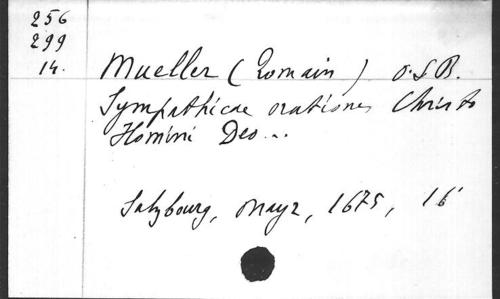 256
299
14.
Mueller (Romain) O.S.B.
Sympathicae orationes Christo
Homini Deo...
Salzbourg, Mayr, 1675, 16°